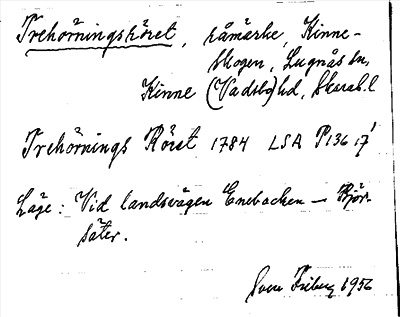 Trehörningsröset, råmärke, Kinne-
skogen, Lugnås sn,
Kinne (Vadsbo) hd, Skarab. l
Trehörnings Röset 1784 LSA P136 17¹
Läge: Vid landsvägen Enebacken – Björ-
säter.
Sven Friberg 1956